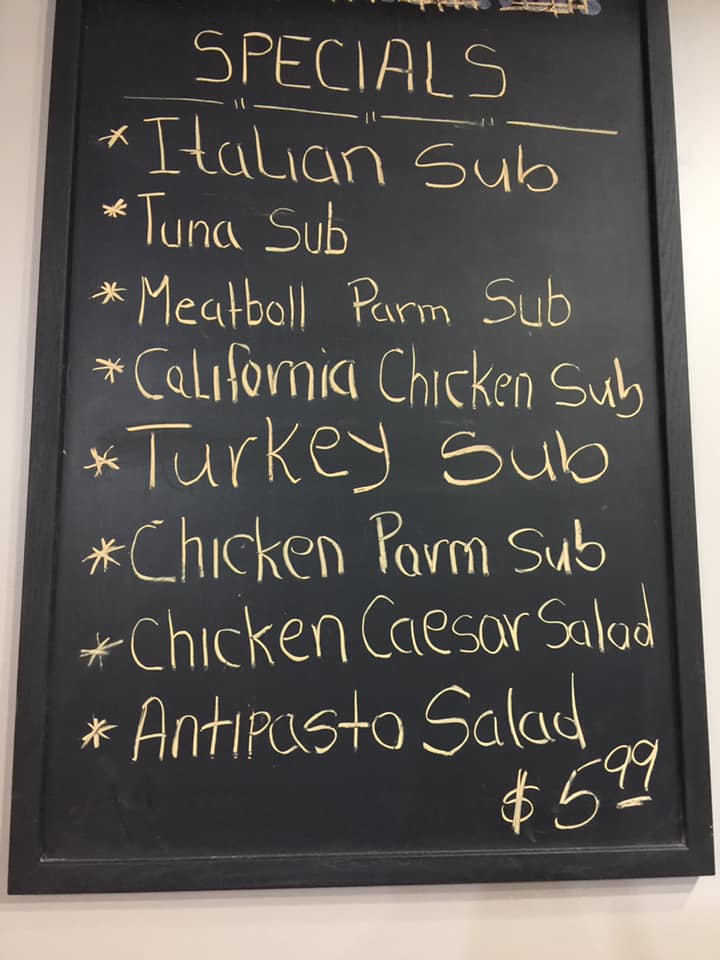 SPECIALS
* Italian Sub
* Tuna Sub
* Meatball Parm Sub
* California Chicken Sub
* Turkey Sub
* Chicken Parm Sub
* Chicken Caesar Salad
* Antipasto Salad
$5.99